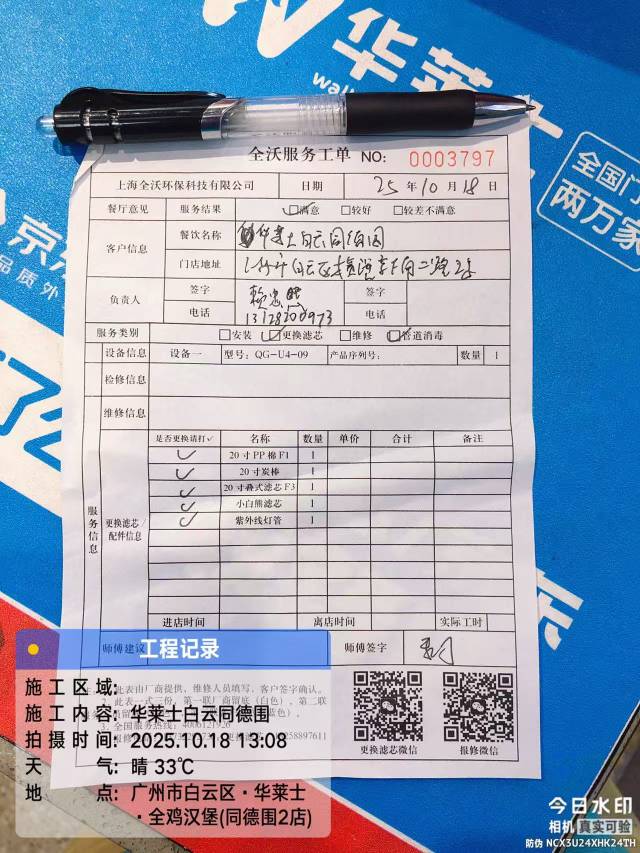 华莱士
wall
全国门
两万家
京东
品质外
全沃服务工单 NO: 0003797
上海全沃环保科技有限公司 日期 25 年 10 月 18 日
餐厅意见 服务结果 ☑满意 □较好 □较差不满意
客户信息 餐饮名称 华莱士白云同德围
门店地址
负责人 签字 签字
电话 13128200973 电话
服务类别 □安装 ☑更换滤芯 □维修 ☑管道消毒
设备信息 设备一 型号: QG-U4-09 产品序列号: 数量 1
检修信息
维修信息
服务信息
更换滤芯/配件信息
是否更换请打✓ 名称 数量 单价 合计 备注
✓ 20寸PP棉F1 1
✓ 20寸炭棒 1
✓ 20寸叠式滤芯F3 1
✓ 小白熊滤芯 1
✓ 紫外线灯管 1
进店时间 离店时间 实际工时
师傅建议 师傅签字
此表由厂商提供，维修人员填写，客户签字确认。
更换滤芯微信 报修微信
工程记录
施工区域:
施工内容: 华莱士白云同德围
拍摄时间: 2025.10.18 13:08
天气: 晴 33℃
地点: 广州市白云区·华莱士
·全鸡汉堡(同德围2店)
今日水印
相机 真实可验
防伪 NCX3U24XHK24TH